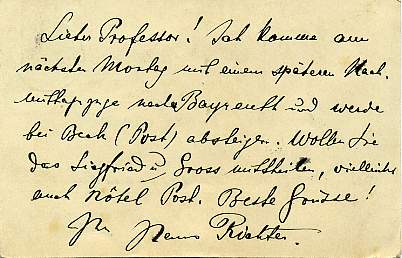 Lieber Professor! Ich komme am
nächsten Montag mit einem späteren Nach-
mittagszuge nach Bayreuth und werde
bei Beck (Post) absteigen. Wollen Sie
das Siegfried u. Gross mittheilen, vielleicht
auch Hôtel Post. Beste Grüsse!
Ihr Hans Richter.